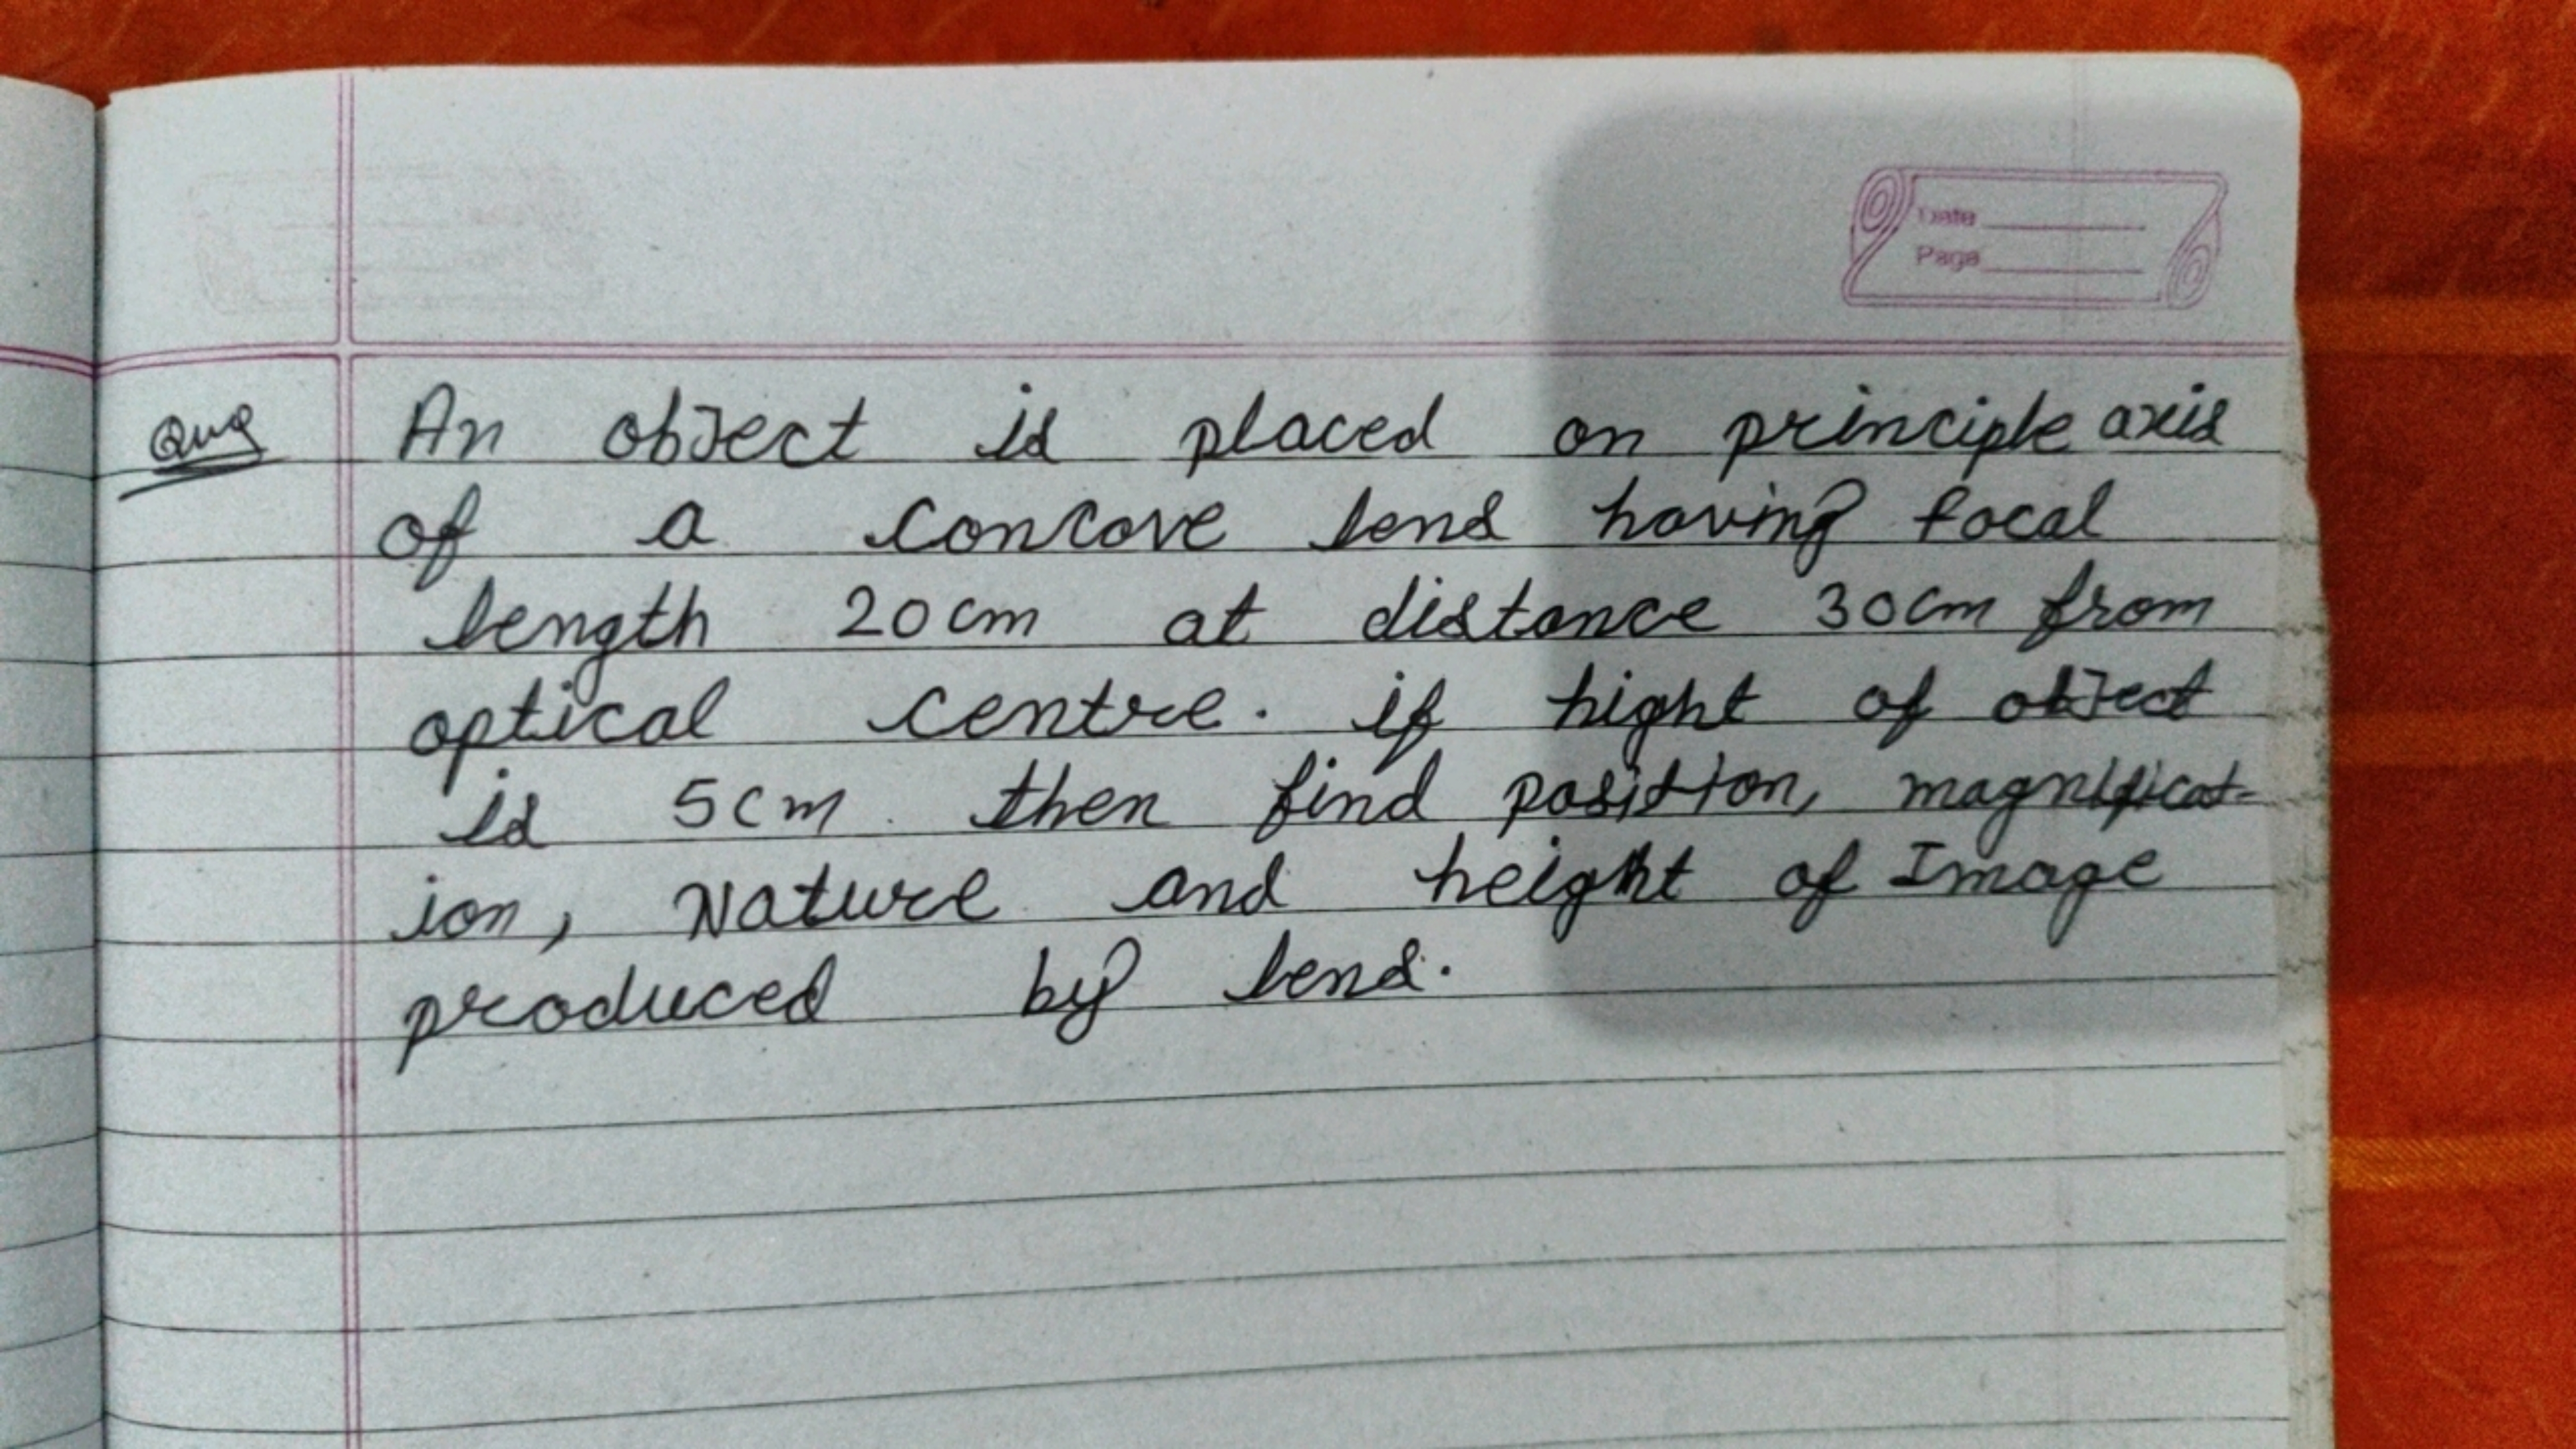 Date
Page
Que An object is placed on principle axis
of a concave lens having focal
length 20cm at distance 30cm from
optical centre. if hight of object
is 5cm then find position, magnificat-
ion, Nature and height of Image
produced by lens.